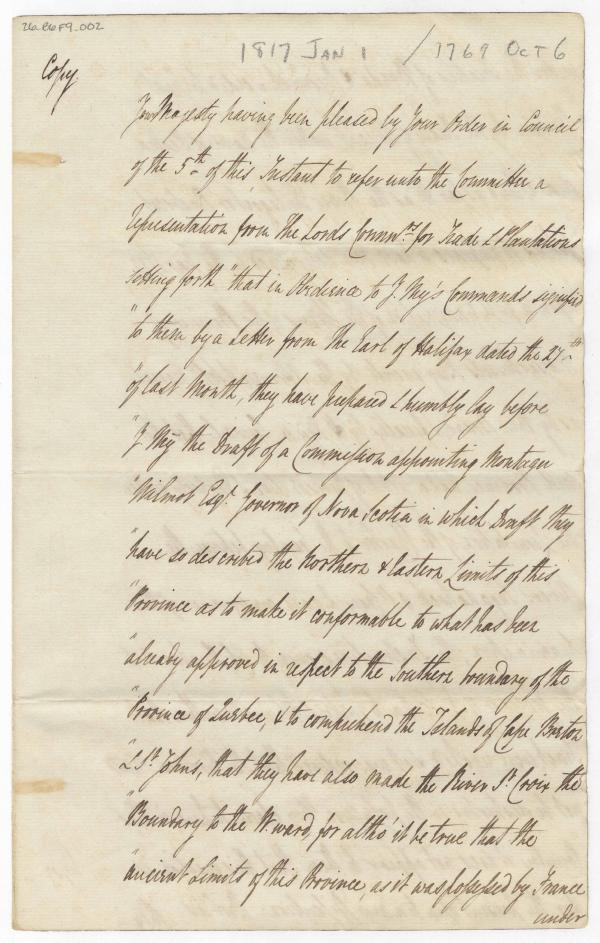 26.B6F9.002
1817 JAN 1 / 1769 OCT 6
Copy.
Your Majesty having been pleased by Your Order in Council
of the 5th of this Instant to refer unto the Committee a
representation from The Lords Commrs. for Trade & Plantations
setting forth "that in Obedience to Y. My's Commands signified
"to them by a Letter from The Earl of Halifax dated the 27th
"of last Month, they have prepared & humbly lay before
"Y. My the Draft of a Commission appointing Montagu
"Wilmot Esqr. Governor of Nova Scotia in which Draft they
"have so described the Northern & Eastern Limits of this
"Province as to make it conformable to what has been
"already approved in respect to the Southern boundary of the
"Province of Quebec, & to comprehend the Islands of Cape Breton
"& St. Johns, that they have also made the River St. Croix the
"Boundary to the Wward, for altho' it be true that the
"ancient Limits of this Province, as it was possessed by France
under